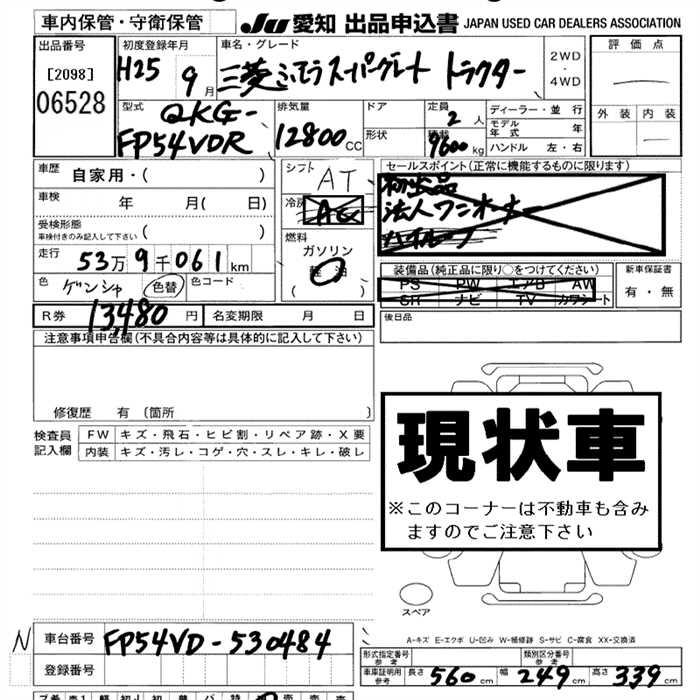 車内保管・守衛保管
JU 愛知 出品申込書 JAPAN USED CAR DEALERS ASSOCIATION
出品番号
[2098]
06528
初度登録年月
H25 9月
車名・グレード
三菱ふそうスーパーグレート トラクター
2WD
・
4WD
評価点
外装 内装
型式
QKG-
FP54VDR
排気量
12800 CC
ドア
形状
定員
2 人
積載
9600 kg
ディーラー・並行
モデル年式 年
ハンドル 左・右
車歴
自家用・( )
車検 年 月( 日)
受検形態
車検付きのみ記入して下さい ( )
走行 53万9千061km
色 ゲンシャ 色替 色コード
シフト
AT
冷房
AC
燃料
ガソリン
軽油
( )
セールスポイント(正常に機能するものに限ります)
初出品
法人ワンオーナー
ハイルーフ
装備品(純正品に限り○をつけてください)
PS PW エアB AW
SR ナビ TV カワシート
新車保証書
有・無
R券 13,480 円 名変期限 月 日
後日品
注意事項申告欄(不具合内容等は具体的に記入して下さい)
修復歴 有〔箇所 〕
検査員
記入欄
FW キズ・飛石・ヒビ割・リペア跡・X要
内装 キズ・汚レ・コゲ・穴・スレ・キレ・破レ
現状車
※このコーナーは不動車も含み
ますのでご注意下さい
スペア
A-キズ E-エクボ U-凹み W-補修跡 S-サビ C-腐食 XX-交換済
N 車台番号 FP54VD-530484
登録番号
形式指定番号
参考
類別区分番号
参考
車庫証明用
参考
長さ 560 cm 幅 249 cm 高さ 339 cm